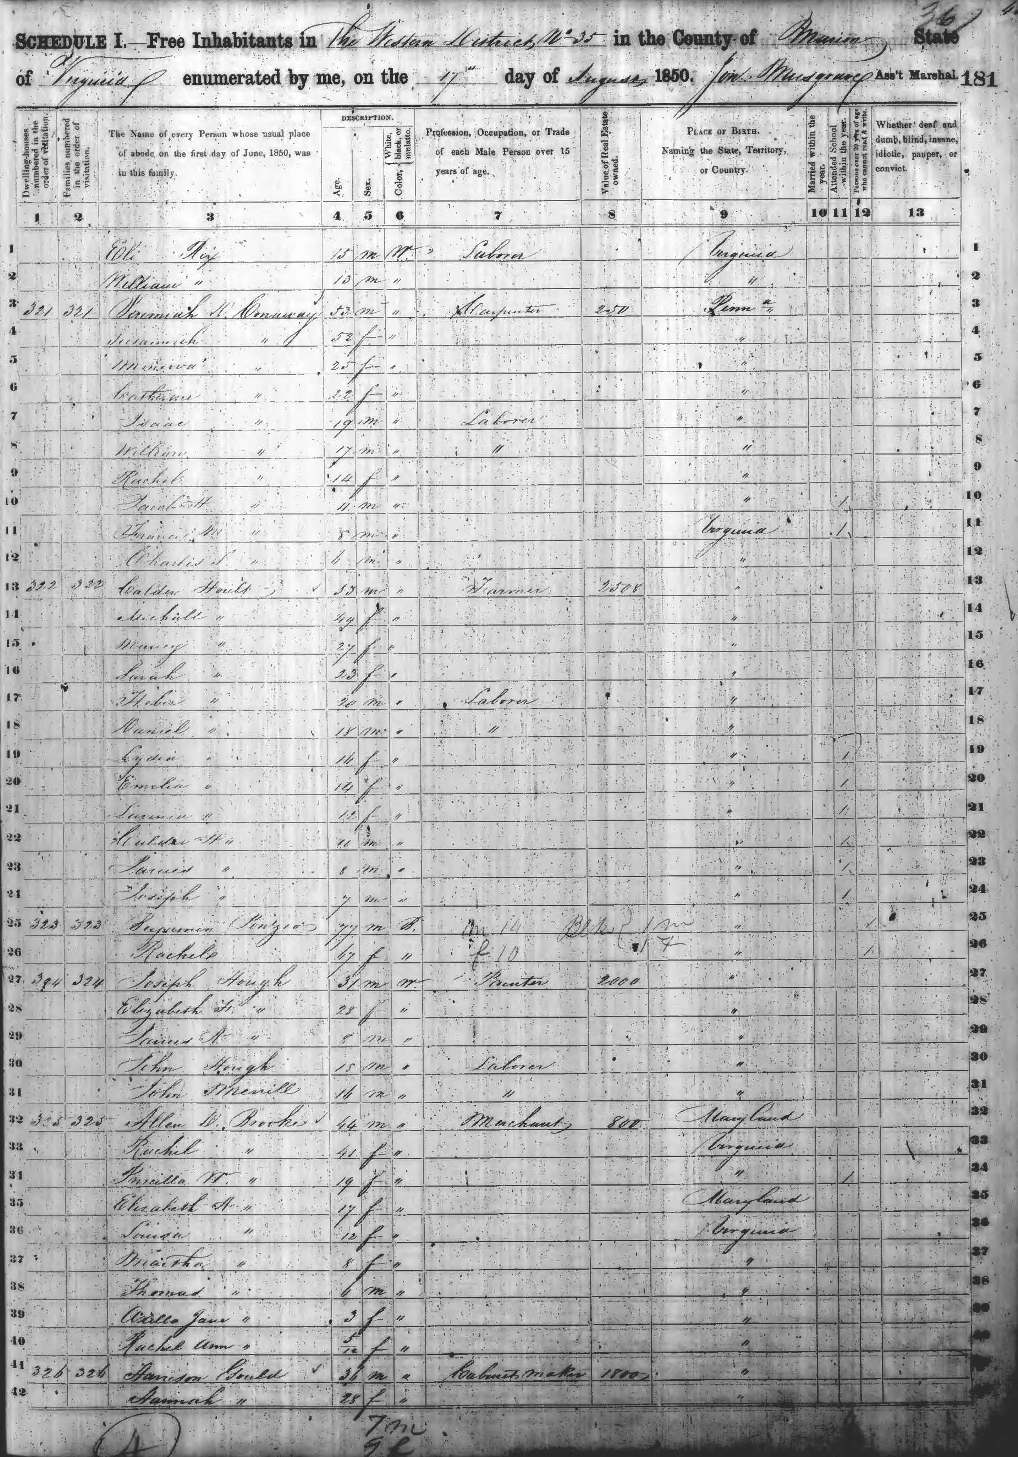 36
SCHEDULE I.—Free Inhabitants in The Western District No 35 in the County of Marion State
of Virginia enumerated by me, on the 17th day of August 1850. Jon. Musgrave Ass't Marshal. 181
Dwelling-houses numbered in the order of visitation. Families numbered in the order of visitation. The Name of every Person whose usual place of abode on the first day of June, 1850, was in this family. DESCRIPTION. Age. Sex. Color, White, black, or mulatto. Profession, Occupation, or Trade of each Male Person over 15 years of age. Value of Real Estate owned. PLACE OF BIRTH. Naming the State, Territory, or Country. Married within the year. Attended School within the year. Persons over 20 y'rs of age who cannot read & write. Whether deaf and dumb, blind, insane, idiotic, pauper, or convict.
1 2 3 4 5 6 7 8 9 10 11 12 13
1 Eli Rix 15 m W. Laborer Virginia 1
2 William " 13 m " " 2
3 321 321 Jeremiah Conaway 53 m " Carpenter 250 Penna 3
4 Susannah " 52 f " " 4
5 Minerva " 25 f " " 5
6 Catharine " 22 f " " 6
7 Isaac " 19 m " Laborer " 7
8 William " 17 m " " " 8
9 Rachel " 14 f " " 9
10 Jacob H " 11 m " " 1 10
11 Francis " 8 m " Virginia 1 11
12 Charles S " 6 m " " 12
13 322 322 53 m " Farmer 2508 " 13
14 " 49 f " " 14
15 Nancy " 27 f " " 15
16 Sarah " 23 f " " 16
17 " 20 m " Laborer " 17
18 Daniel " 18 m " " " 18
19 Lydia " 16 f " " 1 19
20 Emelia " 14 f " " 1 20
21 " 12 f " " 1 21
22 " 10 m " " 1 22
23 James " 8 m " " 1 23
24 Joseph " 7 m " " 1 24
25 323 323 77 m B. Blk 1 m " 1 25
26 Rachel 67 f " f 10 1 f " 1 26
27 324 324 Joseph Hough 31 m W 2000 " 27
28 Elizabeth " 23 f " " 28
29 James A " m " " 29
30 John Hough 15 m " Laborer " 30
31 John Merrill 16 m " " " 31
32 325 325 Allen Brooke 44 m " Merchant 800 Maryland 32
33 Rachel " 41 f " Virginia 33
34 Priscilla W. " 19 f " " 1 34
35 Elizabeth A " 17 f " Maryland 35
36 Louisa " 12 f " Virginia 36
37 Martha " 8 f " " 37
38 Thomas " 6 m " " 38
39 Jane " 3 f " " 39
40 Rachel Ann " 5/12 f " " 40
41 326 326 Harrison Gould 36 m " Cabinet maker 1800 " 41
42 Hannah " 28 f " " 42
4
7 m